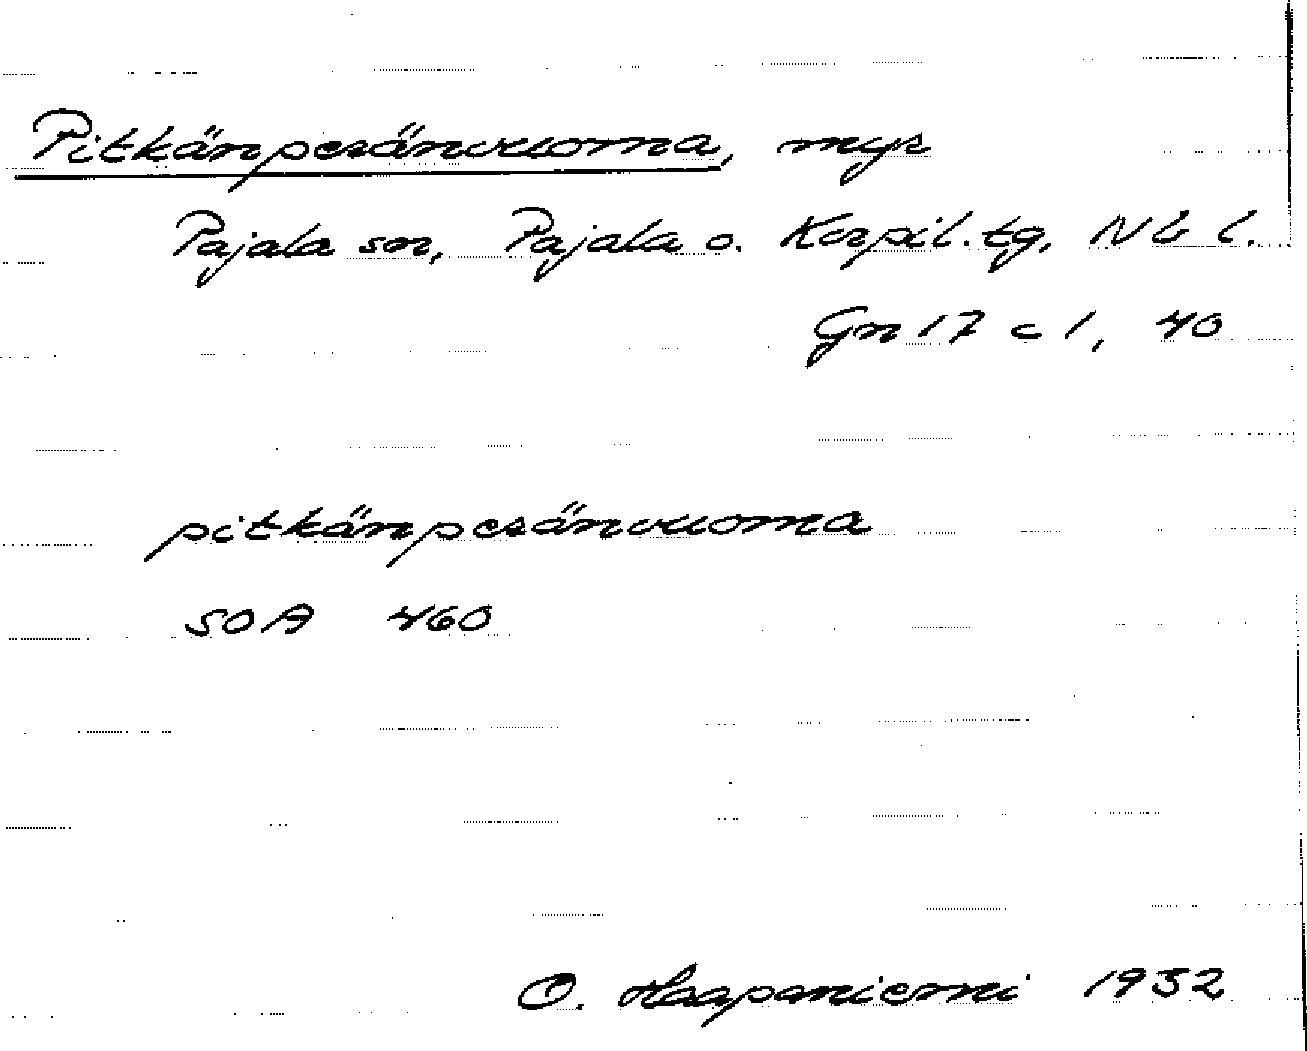 Pitkänpesänvuoma, myr
Pajala sn, Pajala o. Korpil. tg, Nb l.
Gn 17 c 1, 40
pitkänpesänvuoma
SOA 460
O. Haapaniemi 1932